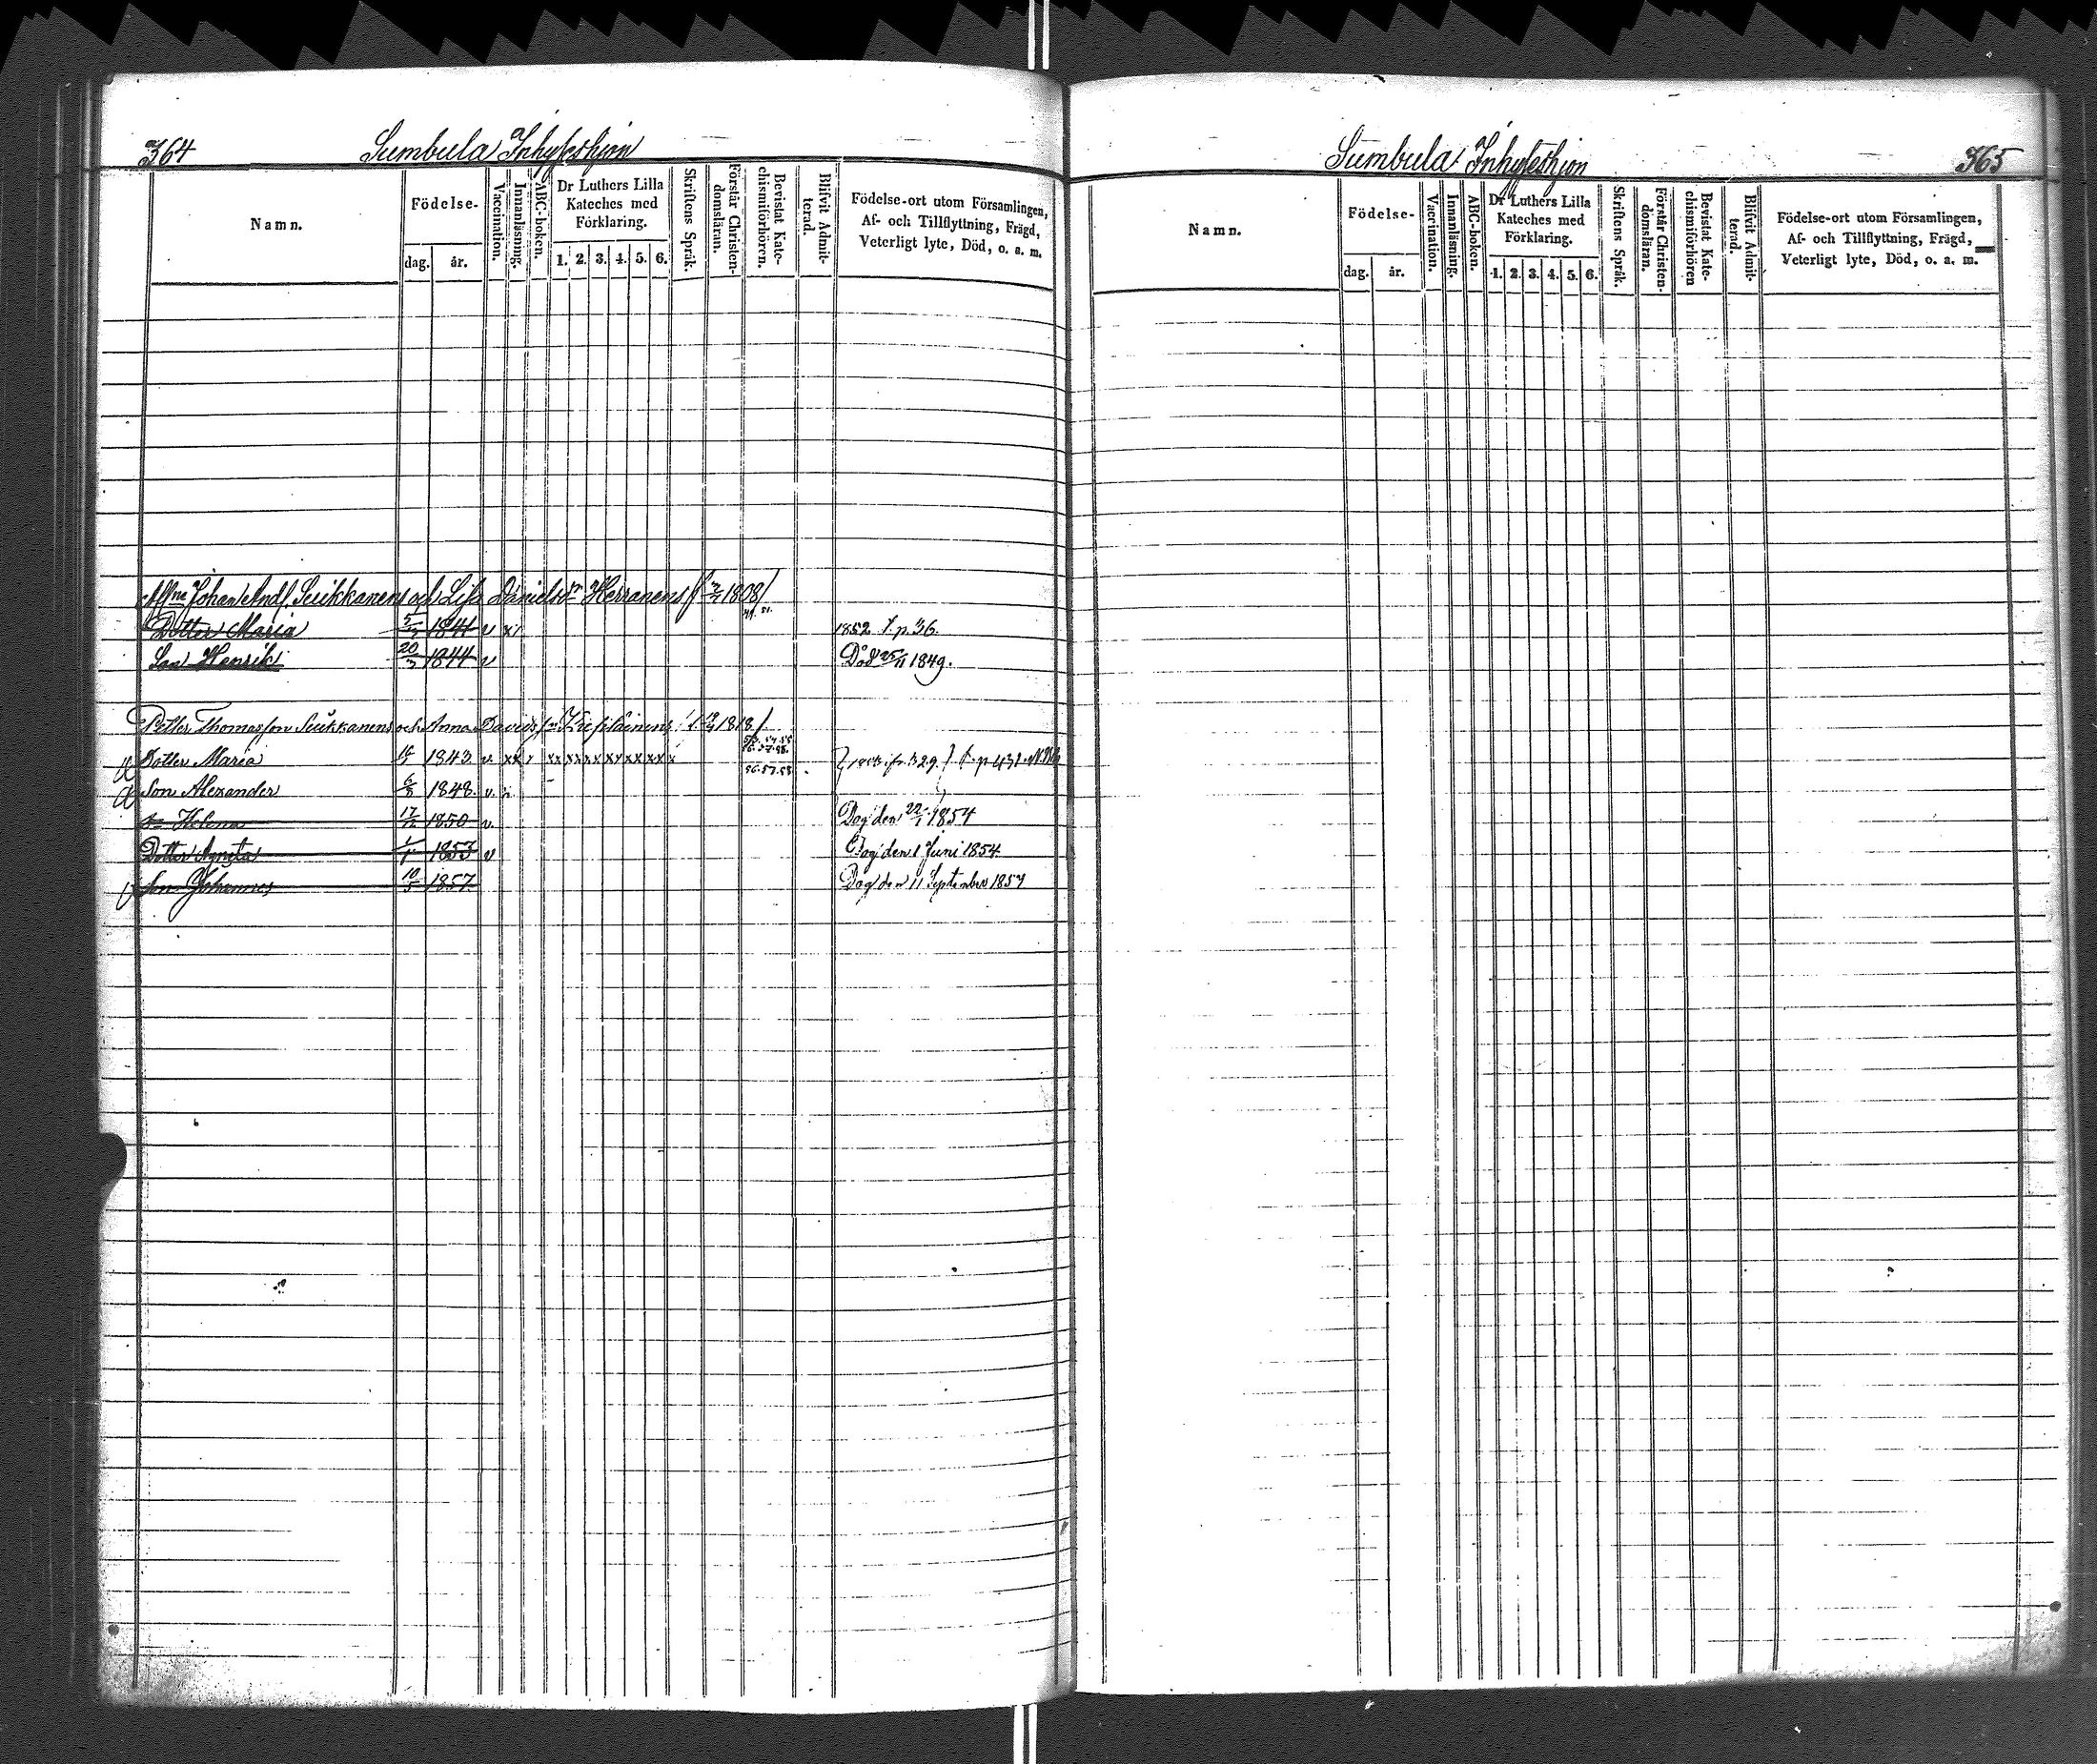 364 Sumbula Inhyseshjon
Namn.
Födelse-
dag. år.
Vaccination.
Innanläsning.
ABC-boken.
Dr Luthers Lilla
Kateches med
Förklaring.
1. 2. 3. 4. 5. 6.
Skriftens Språk.
Förstår Christen-
domsläran.
Bevistat Kate-
chismiförhören.
Blifvit Admit-
terad.
Födelse-ort utom Församlingen,
Af- och Tillflyttning, Frägd,
Veterligt lyte, Död, o. a. m.
Johan And. Suikkanens och Lisa Danielsdr Herranens 1808
Dotter Maria 1841 v x 1852 f. p. 36.
Son Henrik 20/3 1844 v Död 25/11 1849.
Petter Thomasson Suikkanens och Anna Davids 1818
Dotter Maria 1843 v xx xx xx xx xx xx xx 56.57.58. p. 431
Son Alexander 6/8 1848. v.
Helena 17/12 1850 v. Dog den 22/1 1854
Dotter Agneta 1853 v Dog den 1 Juni 1854
Son Johannes 10/5 1857 Dog den 11 September 1857
Sumbula Inhyseshjon 365
Namn.
Födelse-
dag. år.
Vaccination.
Innanläsning.
ABC-boken.
Dr Luthers Lilla
Kateches med
Förklaring.
1. 2. 3. 4. 5. 6.
Skriftens Språk.
Förstår Christen-
domsläran.
Bevistat Kate-
chismiförhören
Blifvit Admit-
terad.
Födelse-ort utom Församlingen,
Af- och Tillflyttning, Frägd,
Veterligt lyte, Död, o. a. m.